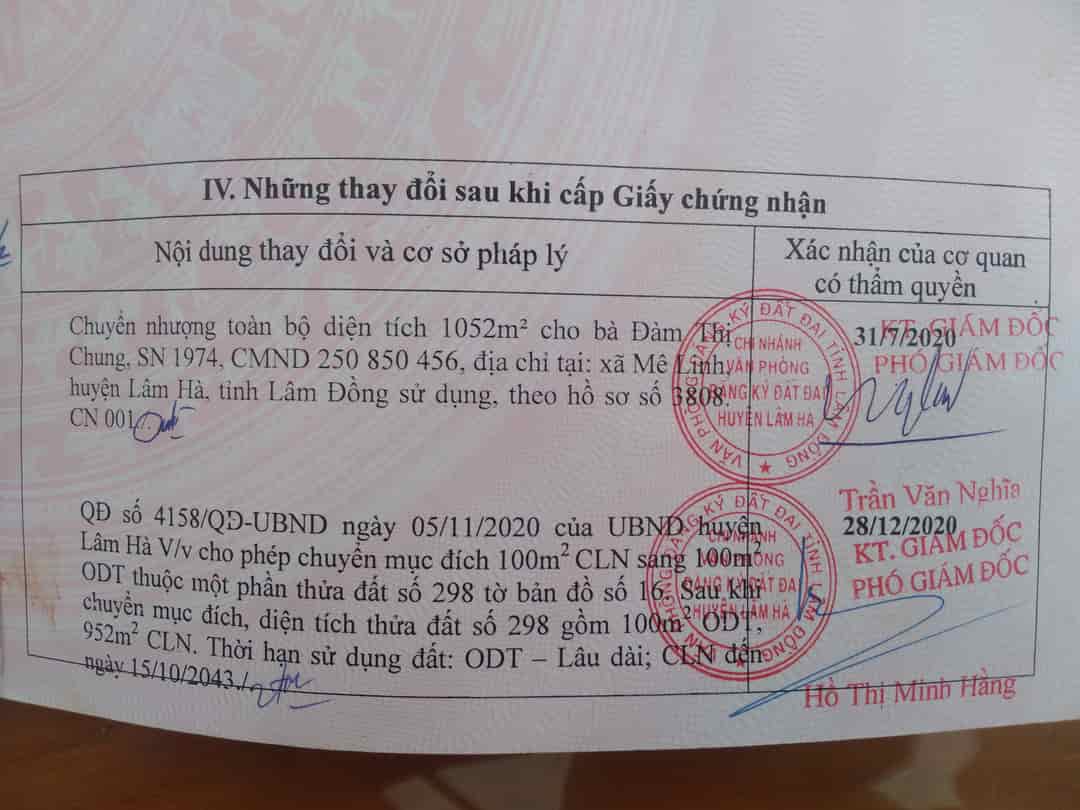 IV. Những thay đổi sau khi cấp Giấy chứng nhận
Nội dung thay đổi và cơ sở pháp lý
Xác nhận của cơ quan
có thẩm quyền
Chuyển nhượng toàn bộ diện tích 1052m² cho bà Đàm Thị
Chung, SN 1974, CMND 250 850 456, địa chỉ tại: xã Mê Linh,
huyện Lâm Hà, tỉnh Lâm Đồng sử dụng, theo hồ sơ số 3808.
CN 001
31/7/2020
KT. GIÁM ĐỐC
PHÓ GIÁM ĐỐC
VĂN PHÒNG ĐĂNG KÝ ĐẤT ĐAI TỈNH LÂM ĐỒNG
CHI NHÁNH
VĂN PHÒNG
ĐĂNG KÝ ĐẤT ĐAI
HUYỆN LÂM HÀ
Trần Văn Nghĩa
QĐ số 4158/QĐ-UBND ngày 05/11/2020 của UBND huyện
Lâm Hà V/v cho phép chuyển mục đích 100m² CLN sang 100m²
ODT thuộc một phần thửa đất số 298 tờ bản đồ số 16. Sau khi
chuyển mục đích, diện tích thửa đất số 298 gồm 100m² ODT,
952m² CLN. Thời hạn sử dụng đất: ODT – Lâu dài; CLN đến
ngày 15/10/2043./.
28/12/2020
KT. GIÁM ĐỐC
PHÓ GIÁM ĐỐC
VĂN PHÒNG ĐĂNG KÝ ĐẤT ĐAI TỈNH LÂM ĐỒNG
CHI NHÁNH
VĂN PHÒNG
ĐĂNG KÝ ĐẤT ĐAI
HUYỆN LÂM HÀ
Hồ Thị Minh Hằng